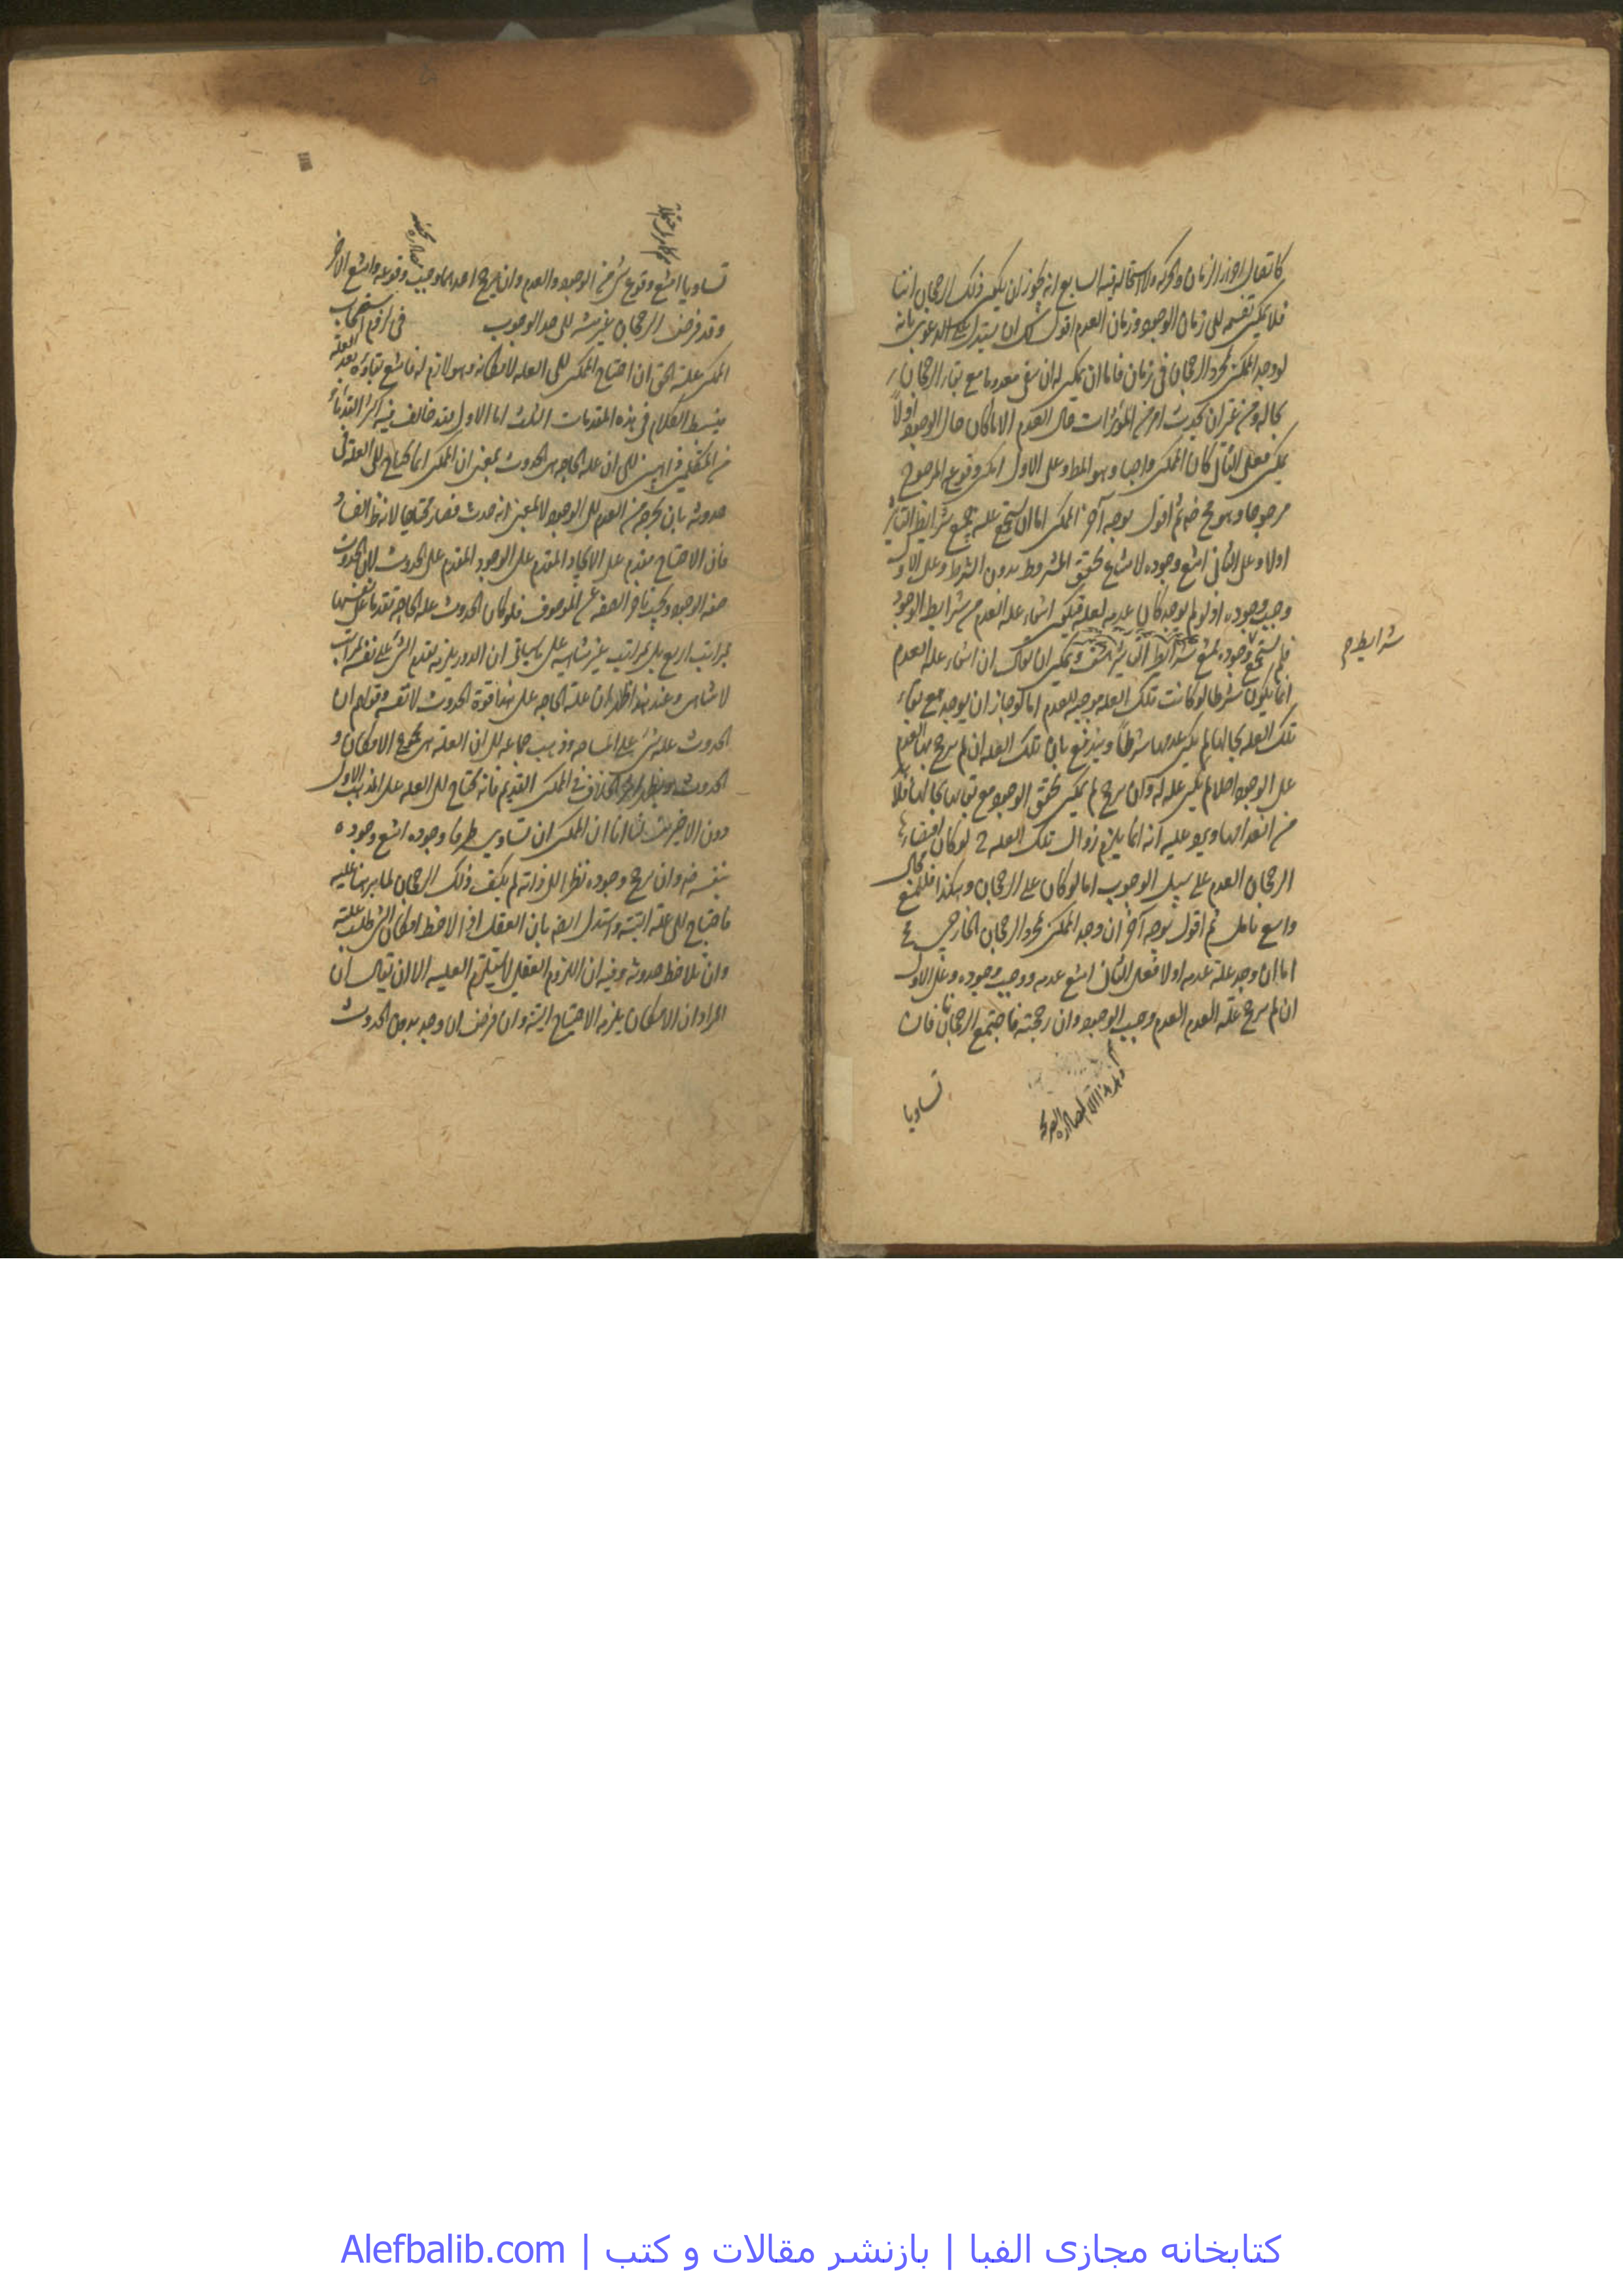 كاتصال اجزاء الزمان والحركة ولا استحالة فيه السابع انه يجوز ان يكون ذلك الرجحان
فلا يمكن تقسيمه الى زمان الوجود وزمان العدم اقول لك ان يستدل على الدعوى بانه
لو وجد الممكن بمجرد الرجحان في زمان فاما ان يمكن له ان يبقى معدوما مع بقاء الرجحان
بحاله ومن غير ان يحدث امر من المؤثرات حال العدم الا ما كان حال الوجود اولا
يمكن فعلى الثاني كان الممكن واجبا وهو المط وعلى الاول امكن وقوع المرجوح
مرجوحا وهو مح ثم اقول بوجه آخر الممكن اما ان يستجمع علته جميع شرايط التاثير
اولا وعلى الثاني امتنع وجوده لامتناع تحقق المشروط بدون الشرط وعلى الاول
وجب وجوده اذ لو لم يوجد كان عدمه لعلة فيكون انتفاء علة العدم من شرايط الوجود
فلم يستجمع وجوده جميع شرايط التاثير هف ويمكن ان يقال ان انتفاء علة العدم
شرايط م
انما يكون شرطا لو كانت تلك العلة موجبة للعدم اما لو جاز ان يوجد مع بقاء
تلك العلة بحالها لم يكن عدمها شرطا ويندفع بان تلك العلة ان لم يرجح بها العدم
على الوجود اصلا لم يكن علة له وان رجح لم يمكن تحقق الوجود مع بقائها بحالها فلا بد
من انعدامها ويرد عليه انه انما يلزم زوال تلك العلة ح لو كان اقتضاء
الرجحان العدم على سبيل الوجوب اما لو كان على الرجحان وهكذا فللمنع مجال
واسع تامل ثم اقول بوجه آخر ان وجد الممكن بمجرد الرجحان الخارجي فح
اما ان وجد علة عدمه اولا فعلى الثاني امتنع عدمه ووجب وجوده وعلى الاول
ان لم يرجح علة العدم العدم وجب الوجود وان رجحته فاجتمع الرجحانان فان
تساويا
تساويا امتنع وقوع شئ من الوجود والعدم وان يرجح احدهما وجب وقوعه وامتنع الاخر
وقد فرض الرجحان غير منته الى حد الوجوب
الممكن علته الحق ان احتياج الممكن الى العلة لامكانه وهو لازم له فامتنع بقاؤه بعد العلة
فبسط الكلام في هذه المقدمات الثلث اما الاول فقد خالف فيه اكثر القدماء
من المتكلمين ذاهبين الى ان علة الحاجة هي الحدوث بمعنى ان الممكن انما يحتاج الى العلة في
حدوثه بان يخرجه من العدم الى الوجود لا بمعنى انه حدث فصار محتاجا لانه ظ الفساد
فان الاحتياج مقدم على الايجاد المقدم على الوجود المقدم على الحدوث لان الحدوث
صفة الوجود ويجب تاخر الصفة عن الموصوف فلو كان الحدوث علة الحاجة تقدم على نفسها
بمراتب اربع بل بمراتب غير متناهية على ما سياتى ان الدور يلزمه تقدم الشئ على نفسه بمراتب
لا تتناهى وعند هذا ظهر ان علة الحاجة على هذا قوة الحدوث لا نفسه وقولهم ان
الحدوث علة شئ على المسامحة وذهب جماعة الى ان العلة هي مجموع الامكان و
الحدوث ويظهر اثر الخلاف في الممكن القديم فانه يحتاج الى العلة على المذهب الاول
دون الاخيرين لنا ان الممكن ان تساوى طرفا وجوده امتنع وجوده
بنفسه ضرورة وان رجح وجوده نظرا الى ذاته لم يكف ذلك الرجحان لما برهنا عليه
فاحتاج الى علة البتة واستدل ايضا بان العقل اذا لاحظ امكان الشئ طلب علته
وان لم يلاحظ حدوثه وفيه ان اللزوم العقلي لا يستلزم العلية الا ان يقال ان
المراد ان الامكان يلزمه الاحتياج البتة وان فرض ان وجد بدون الحدوث
کتابخانه مجازی الفبا | بازنشر مقالات و کتب | Alefbalib.com